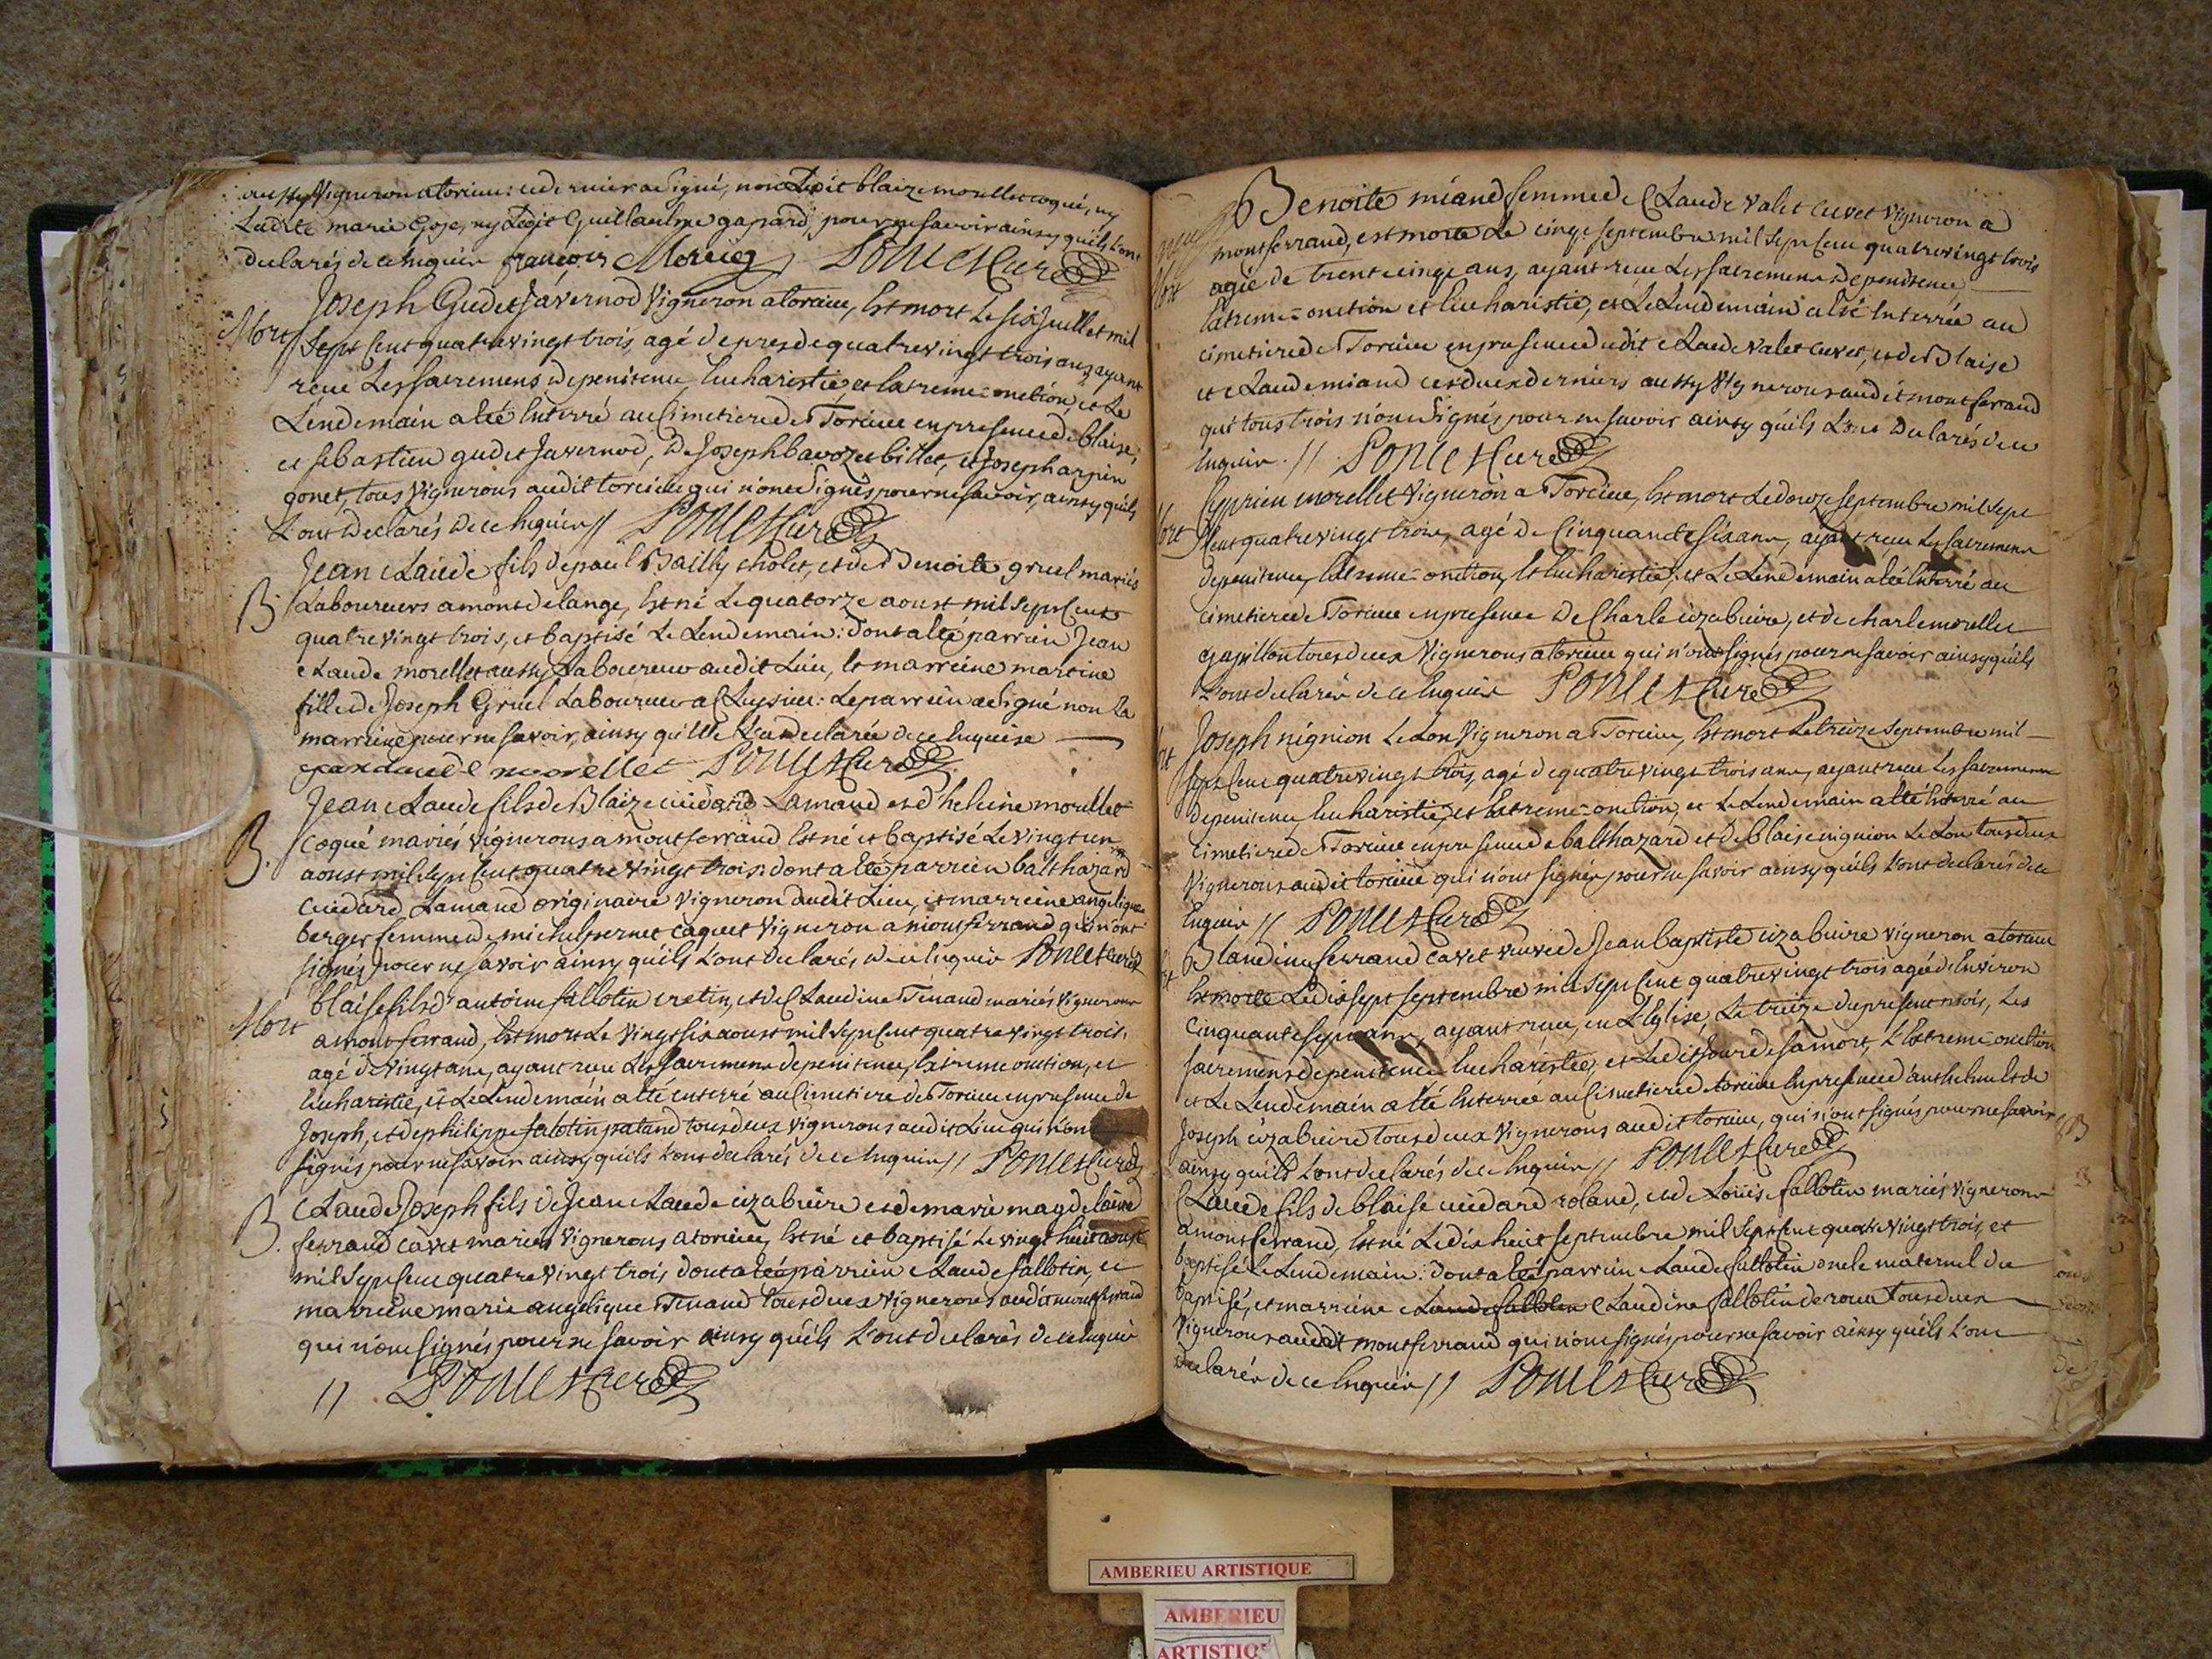 aussy Vigneron a torcieu: ce dernier a signé, non Ledit blaize morellet coqué, ny
Ladite marie Goje, ny Ledit Guillaulme gapard, pour ne savoir ainsy quils L'ont
declarés de ce Enquis françois Mercier PONCET Curé
Joseph Gudet Javernod Vigneron a torcieu, Est mort Le six Juillet mil
Mort Sept Cent quatrevingt trois, agé de pres de quatre vingt trois ans, ayant
reçu Les sacremens de penitence, Eucharistie, et Extreme-onction, et Le
Lendemain a eté Enterré au Cimetiere de Torcieu en presence de blaise,
et sebastien gudet Javernod, de Joseph bavozet billet, et Joseph arpin
gonet, tous Vignerons audit torcieu qui n'ont signés pour ne savoir, ainsy quils
L'ont declarés de ce Enquis // PONCET Curé
Jean Claude fils de paul Bailly cholet, et de Benoite gruel mariés
B. Laboureurs a mont de lange, Est né Le quatorze aoust mil sept Cent
quatre vingt trois, et baptisé Le Lendemain: dont a eté parrein Jean
Claude morellet aussy Laboureur audit Lieu, et marreine martine
fille de Joseph Gruel Laboureur a Cleysieu: Le parrein a signé non La
marreine pour ne savoir, ainsy qu'elle L'a declarée de ce Enquise
jan claude morellet PONCET Curé
Jean Claude fils de Blaize cuidard Lamand et d'heleine morellet
B. coqué mariés vignerons a montferrand Est né et baptisé Le vingt un
aoust mil sept Cent quatre vingt trois: dont a eté parrein balthazard
cuidard Lamand originaire Vigneron dudit Lieu, et marreine angelique
berger femme de michel pernet caquet Vigneron a montferrand qui n'ont
signés pour ne savoir ainsy quils L'ont declarés de ce Enquis PONCET Curé
blaise fils d'antoine fallotin cretin, et de Claudine Tenand mariés Vignerons
Mort a montferrand, Est mort Le vingt six aoust mil sept Cent quatre vingt trois,
agé de Vingt ans, ayant reçu Les sacremens de penitence, Extreme onction, et
Eucharistie, et Le Lendemain a eté enterré au Cimetiere de Torcieu en presence de
Joseph, et de philippe falotin patand tous deux vignerons audit Lieu qui n'ont
signés pour ne savoir ainsy quils L'ont declarés de ce Enquis // PONCET Curé
B. Claude Joseph fils de Jean Claude cizabuire et de marie magdelaine
ferrand cavet mariés Vignerons a torcieu, Est né et baptisé Le vingt huit aoust
mil sept Cent quatre vingt trois dont a eté parrein Claude fallotin, et
marreine marie angelique Tenand tous deux Vignerons audit montferrand
qui n'ont signés pour ne savoir ainsy quils L'ont declarés de ce Enquis
// PONCET Curé
Benoite miand femme de Claude Valet cuvet Vigneron a
montferrand, est morte Le cinq septembre mil sept Cent quatrevingt trois
Mort agée de trente cinq ans, ayant reçu Les sacremens de penitence,
Extreme-onction et Eucharistie, et Le Lendemain a eté Enterrée au
cimetiere de Torcieu en presence dudit Claude Valet cuvet, et de Blaise
et Claude miand ces deux derniers aussy Vignerons audit montferrand
qui tous trois n'ont signés pour ne savoir ainsy quils L'ont declarés de ce
Enquis. // PONCET Curé
Cyprien morellet Vigneron a Torcieu, Est mort Le douze septembre mil sept
Mort Cent quatre vingt trois, agé de Cinquante six ans, ayant reçu Les sacremens
de penitence, Extreme-onction, Et Eucharistie, et Le Lendemain a eté Enterré au
Cimetiere de Torcieu en presence de Charle cizabuire, et de charle morellet
gapillon tous deux Vignerons a torcieu qui n'ont signés pour ne savoir ainsy quils
L'ont declarés de ce Enquis PONCET Curé
Joseph nignion Le Lon Vigneron a Torcieu, Est mort Le treize septembre mil
Mort sept Cent quatre vingt trois, agé de quatre vingt trois ans, ayant reçu Les sacremens
de penitence, Eucharistie, et Extreme-onction, et Le Lendemain a eté Enterré au
Cimetiere de Torcieu en presence de balthazard et de blaise nignion Le Lon tous deux
Vignerons audit torcieu qui n'ont signés pour ne savoir ainsy quils L'ont declarés de ce
Enquis // PONCET Curé
Blandine ferrand cavet veuve de Jean baptiste cizabuire vigneron a torcieu
Est morte Le dix sept septembre mil sept Cent quatrevingt trois agée d'Environ
Cinquante sept ans, ayant reçu, en L'Eglise, Le treize du present mois, Les
sacremens de penitence Eucharistie, et Ledit Jour de sa mort, L'Extreme-onction
et Le Lendemain a eté Enterrée au Cimetiere de torcieu En presence d'anthelme et de
Joseph cizabuire tous deux Vignerons audit torcieu, qui n'ont signés pour ne savoir
ainsy quils L'ont declarés de ce Enquis // PONCET Curé
B
Claude fils de blaise cuidard roland, et de Loüise fallotin mariés Vignerons
a montferrand, Est né Le dix huit septembre mil sept Cent quatre vingt trois, et
baptisé Le Lendemain: dont a eté parrein Claude fallotin oncle maternel du
baptisé, et marreine Claude fallotin Claudine fallotin deroux tous deux
Vignerons audit montferrand qui n'ont signés pour ne savoir ainsy quils L'ont
declarés de ce Enquis // PONCET Curé
AMBERIEU ARTISTIQUE
AMBERIEU
ARTISTIQ